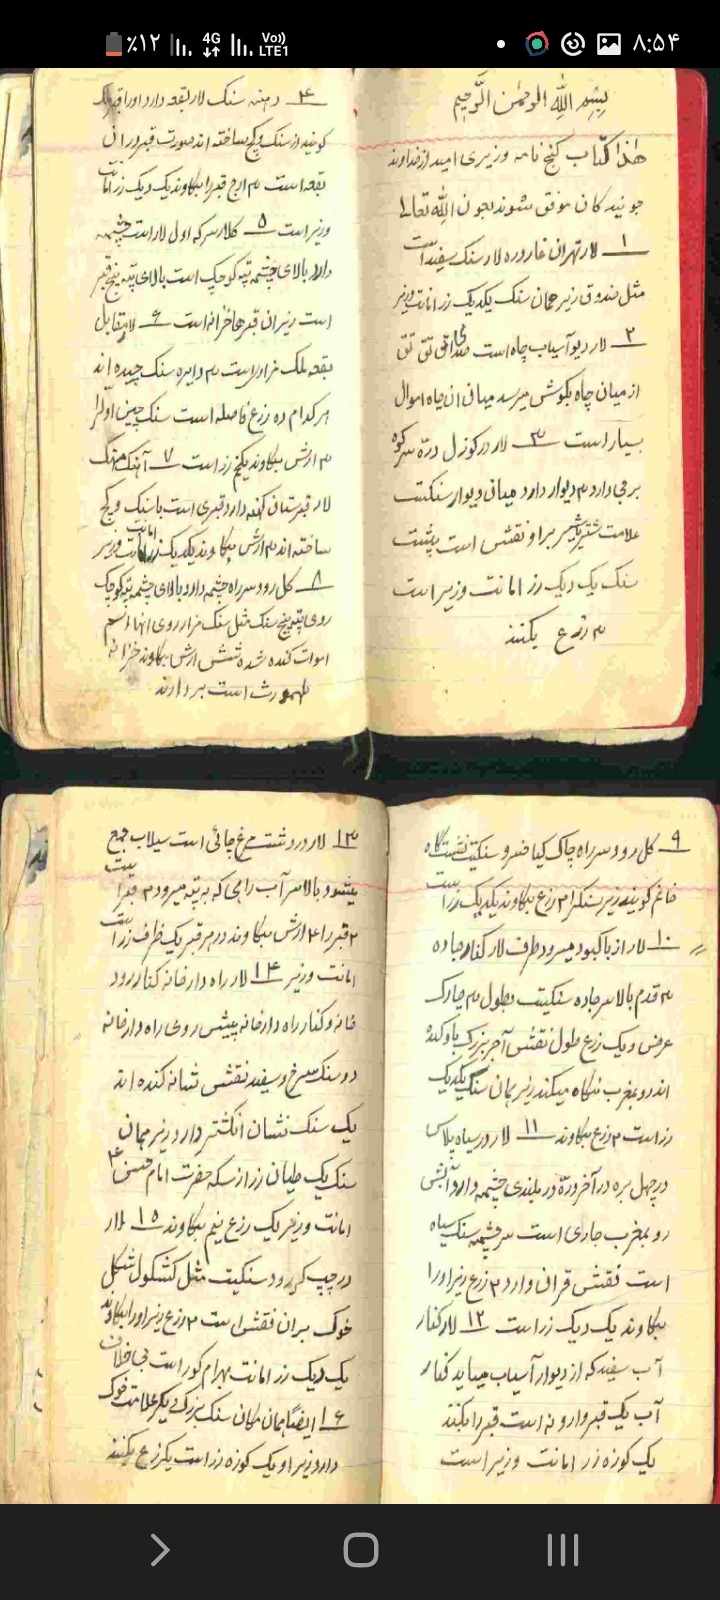 ٪۱۲ 4G Vo)) LTE1 ۸:۵۴
بسم الله الرحمن الرحیم
هذا کتاب کنج نامه وزیری امید از خداوند
جویندکان موفق شوند بعون الله تعالی
۱ لار تهران غار دره لار سنک سفید است
مثل صندوق زیر همان سنک یکدیک زر امانت وزیر
۲ لار دیو آسیاب چاه است صدای تق تق تق
از میان چاه بکوش میرسد میان ان چاه اموال
بسیار است ۳ لار در کوزل دره سر کوه
برجی دارد ۳ دیوار دارد میان دیوار سنکیت
علامت شتر بر او نقش است پشت
سنک یک دیک زر امانت وزیر است
۳ زرع بکنند
۴ دهنه سنک لار بقعه دارد او را قبر
کویند از سنک و کچ ساخته اند صورت قبر در ان
بقعه است ۳ ارج قبر را بکاوند یک دیک زر امانت
وزیر است ۵ کلارسر که اول لار است چشمه
دارد بالای چشمه تپه کوچک است بالای تپه پنج قبر
است زیر ان قبرها خزانه است ۶ لار مقابل
بقعه ملک مزاری است ۳ دایره سنک چیده اند
هر کدام ده زرع فاصله است سنک چین اول را
۳ ارش بکاوند یکخم زر است ۷ آهنک
لار قبرستان کهنه دارد قبری است با سنک و کچ
ساخته اند ۳ ارش بکاوند یکدیک زر امانت وزیر
۸ کل رود سر راه چشمه دارد بالای چشمه تپه کوچک
روی تپه پنج سنک مثل سنک مزار روی انها اسم
اموات کنده شده شش ارش بکاوند خزانه
طهمورث است بردارند
۹ کل رود سر راه چاک کیاخسرو سنکیت نشستکاه
خانم کویند زیر سنک را ۲ زرع بکاوند یکدیک زر است
۱۰ لار از باکبود میرود طرف لار کنار جاده
۳ قدم بالا سر جاده سنکیت بطول ۳ چارک
عرض و یک زرع طول نقش آجر بزرک باو کنده
اند رو بمغرب نکاه میکند زیر همان سنک یکدیک
زر است ۲ زرع بکاوند ۱۱ لار در سیاه پلاس
در چهل بره در آخر دره در بلندی چشمه دارد آبش
رو بمغرب جاری است سر چشمه سنک سیاه
است نقش قران دارد ۲ زرع زیر او را
بکاوند یک دیک زر است ۱۲ لار کنار
آب سفید که از دیوار آسیاب میاید کنار
آب یک قبر وارونه است قبر را بکنند
یک کوزه زر امانت وزیر است
۱۳ لار در دشت مرغ جائی است سیلاب جمع
میشود بالا سر آب راهی که به تپه میرود ۲ قبر است
۲ قبر را ۴ ارش بکاوند در هر قبر یک ظرف زر است
امانت وزیر ۱۴ لار راه دار خانه کنار رود
خانه و کنار راه دار خانه پیش روی راه دار خانه
دو سنک سرخ و سفید نقش شانه کنده اند
یک سنک نشان انکشتر دارد زیر همان
سنک یک طیان زر از سکه حضرت امام حسن ع
امانت وزیر یک زرع نیم بکاوند ۱۵ لار
در چپ کرمرود سنکیت مثل کشکول شکل
خوک بر ان نقش است ۲ زرع زیر او را بکاوند
یک دیک زر امانت بهرام کور است بی خلاف
۱۶ ایضا همان مکان سنک بزرک دیکر علامت خوک
دارد زیر او یک کوزه زر است یکزرع بکنند